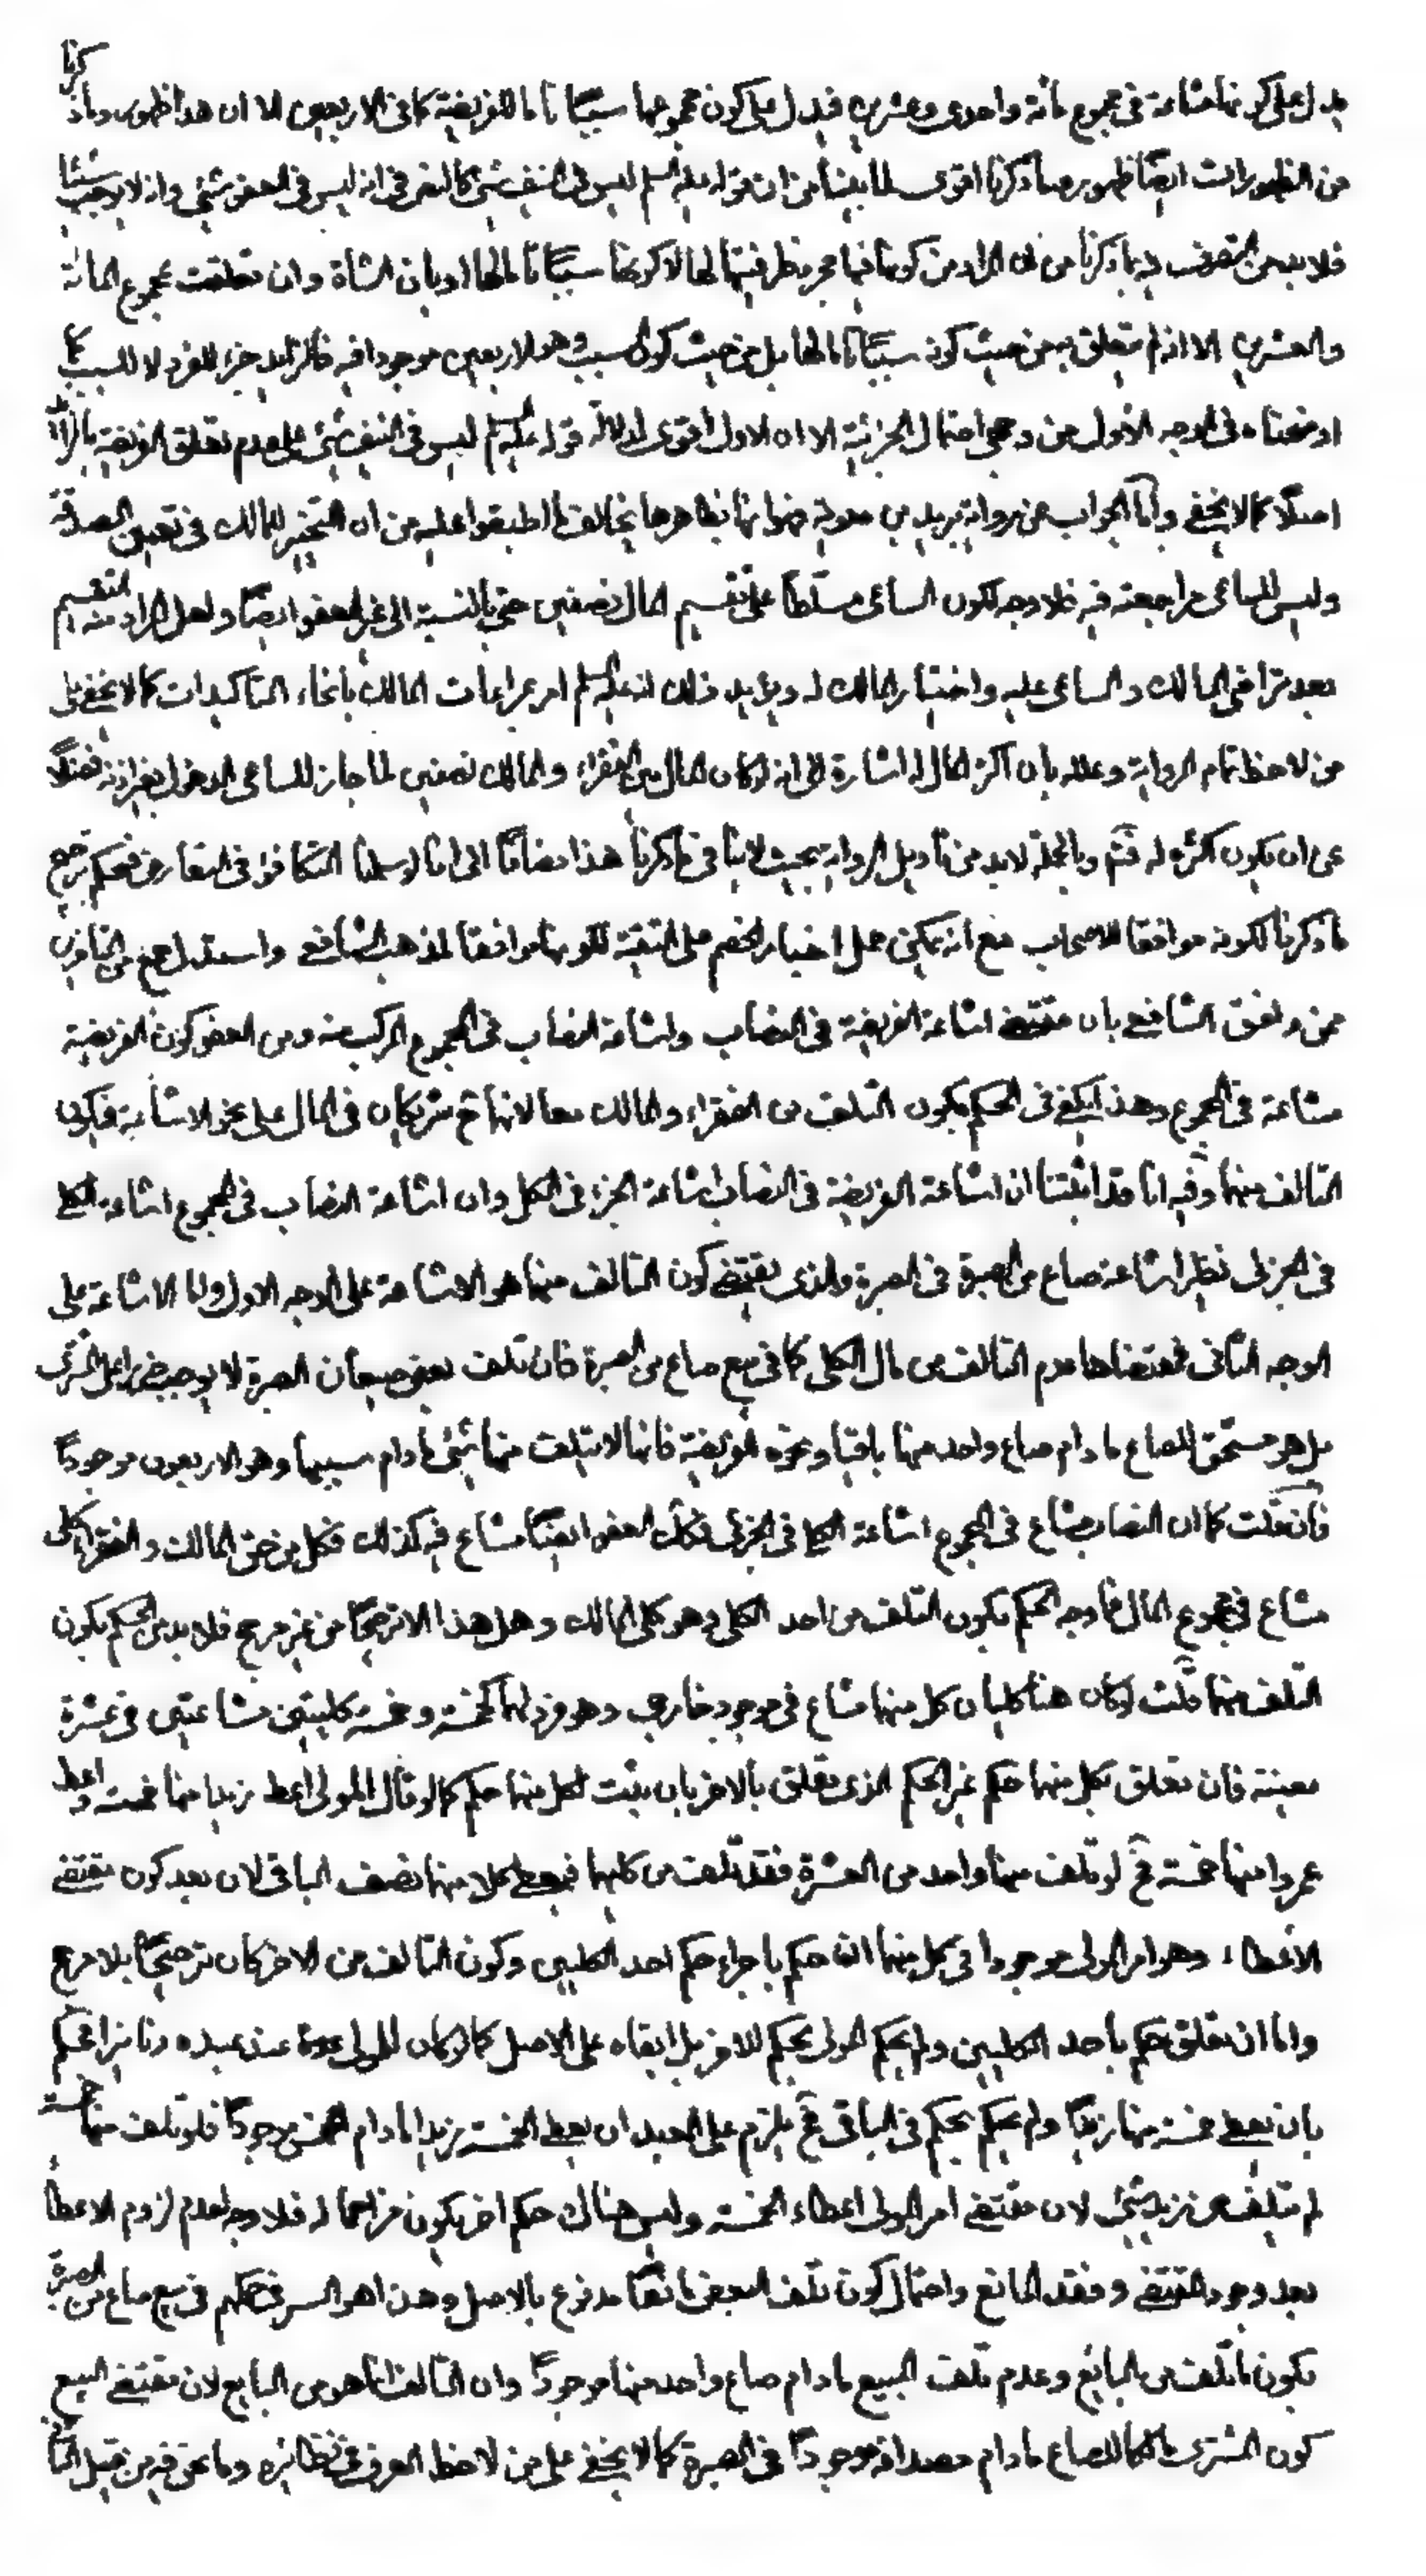 يدل على كونها مشاعة فى مجموع مائة واحدى وعشرين فيدل على كون مجموعها سببًا تاما للفريضة كما فى الاربعين الا ان هذا ظهور وما ذكرنا
من الظهورات ايضًا ظهور وما ذكرنا اقوى لما بينا من ان قوله عليه السلم ليس فى النيف شئ كالنص فى انه ليس فى العفو شئ وانه لا يوجب شيئا
فلا بد من التصرف فيه بما ذكرنا من ان المراد من كونها فيها مجرد ظرفيتها لها لا كونها سببًا تاما لها او بان الشاة وان تعلقت بمجموع المائة
والعشرين الا انه لم يتعلق به من حيث كونه سببًا تاما لها بل من حيث كون السبب وهو الاربعين موجودا فيه فالزايد جزء للفرد لا للسبب كما
اوضحناه فى الوجه الأول من وجهى احتمال الجزئية الا ان الاول اقوى لدلالة قوله عليه السلم ليس فى النيف شئ على عدم تعلق الفريضة بالزايد
اصلًا كما لا يخفى وامّا الجواب عن رواية بريد بن معوية فهو انها بظاهرها يخالف ما اطبقوا عليه من ان التخيير للمالك فى تعيين الصدقة
وليس للساعى مراجعته فيه فلا وجه لكون الساعى مسلطا على تقسيم المال نصفين حتى بالنسبة الى غير العفو ايضًا ولعل المراد منه التقسيم
بعد تراضى المالك والساعى عليه واختيار المالك له ويؤيد ذلك انه عليه السلم امر بمراعات المالك بانحاء التاكيدات كما لا يخفى على
من لاحظ تمام الرواية وعلله بان اكثر المال له اشارة الى انه لو كان المال بين الفقراء والمالك نصفين لما جاز للساعى الدخول بغير اذنه فضلًا
عن ان يكون اكثره له فتم وبالجملة لا بد من تأويل الرواية بحيث لا ينافى ما ذكرنا هذا مضافًا الى انا لو سلمنا التكافؤ فى التعارض فنحكم ترجيح
ما ذكرنا لكونه موافقا للاصحاب مع انه يمكن حمل اخبار الخصم على التقية لكونها موافقا لمذهب الشافعى واستدل جمع من المتأخرين
ممن وافق الشافعى بان مقتضى اشاعة الفريضة فى النصاب واشاعة النصاب فى المجموع المركب منه ومن العفو كون الفريضة
مشاعة فى المجموع وهذا يكفى فى الحكم بكون التلف من الفقراء والمالك معا لانهما ح شريكان فى المال على نحو الاشاعة فيكون
التالف منهما وفيه انا قد اثبتنا ان اشاعة الفريضة فى النصاب اشاعة الجزء فى الكل وان اشاعة النصاب فى المجموع اشاعة الكلى
فى الجزئى نظير اشاعة صاع من الصبرة فى الصبرة والذى يقتضى كون التالف منهما هو الاشاعة على الوجه الاول واما الاشاعة على
الوجه الثانى فمقتضاها عدم التالف من مال الكلى كما فى بيع صاع من الصبرة فان تلف بعض صيعان الصبرة لا يوجب ضررا على المشترى
بل هو مستحق للصاع ما دام صاع واحد منها باقيا ونحوه الفريضة فانها لا يتلف منها شئ ما دام سببها وهو الاربعون موجودًا
فان قلت كما ان النصاب مشاع فى المجموع اشاعة الكلى فى الجزئى فكك العفو ايضًا مشاع فيه كذلك فكل من حق المالك والفقراء كلى
مشاع فى مجموع المال فما وجه الحكم بكون التلف من احد الكلى وهو كلى المالك وهل هذا الا ترجيحًا من غير مرجح فلا بد من الحكم بكون
التلف منهما قلت لو كان هنا كليان كل منهما مشاع فى موجود خارجى وهو فرد لهما كخمسة وخمسة كليتين مشاعتين فى عشرة
معينة فان تعلق بكل منهما حكم غير الحكم الذى تعلق بالاخر بان يثبت لكل منهما حكم كما لو قال المولى اعط زيدا منها خمسة واعط
عمروا منها خمسة فح لو تلف منها واحد من العشرة فقد تلف من كليهما فيعطى كلا منهما نصف الباقى لان بعد كون مقتضى
الاعطاء وهو امر المولى موجودا فى كل منهما ان حكم باجراء حكم احد الكليين وكون التالف من الاخر كان ترجيحًا بلا مرجح
واما ان تعلق حكم باحد الكليين ولم يحكم المولى بحكم للاخر بل ابقاه على الاصل كما لو كان للمولى عند عبده دنانير فحكم
بان يعطى خمسة منها زيدًا ولم يحكم بحكم فى الباقى فح يلزم على العبد ان يعطى الخمسة زيدا ما دام الخمس موجودًا فلو تلف منها خمسة
لم يتلف من زيد شئ لان مقتضى امر المولى اعطاء الخمسة وليس هناك حكم اخر يكون مزاحما له فلا وجه لعدم لزوم الاعطاء
بعد وجود المقتضى وفقد المانع واحتمال كون تلف البعض مانعًا مدفوع بالاصل وهذا هو السر فى حكمهم فى بيع صاع من الصبرة
بكون ما تلف من البائع وعدم تلف المبيع ما دام صاع واحد منها موجودًا وان التالف انما هو من البايع لان مقتضى البيع
كون المشترى مالكا للصاع ما دام مصداقه موجودًا فى الصبرة كما لا يخفى على من لاحظ العرف فى نظائره وما نحن فيه من قبيل الثانى